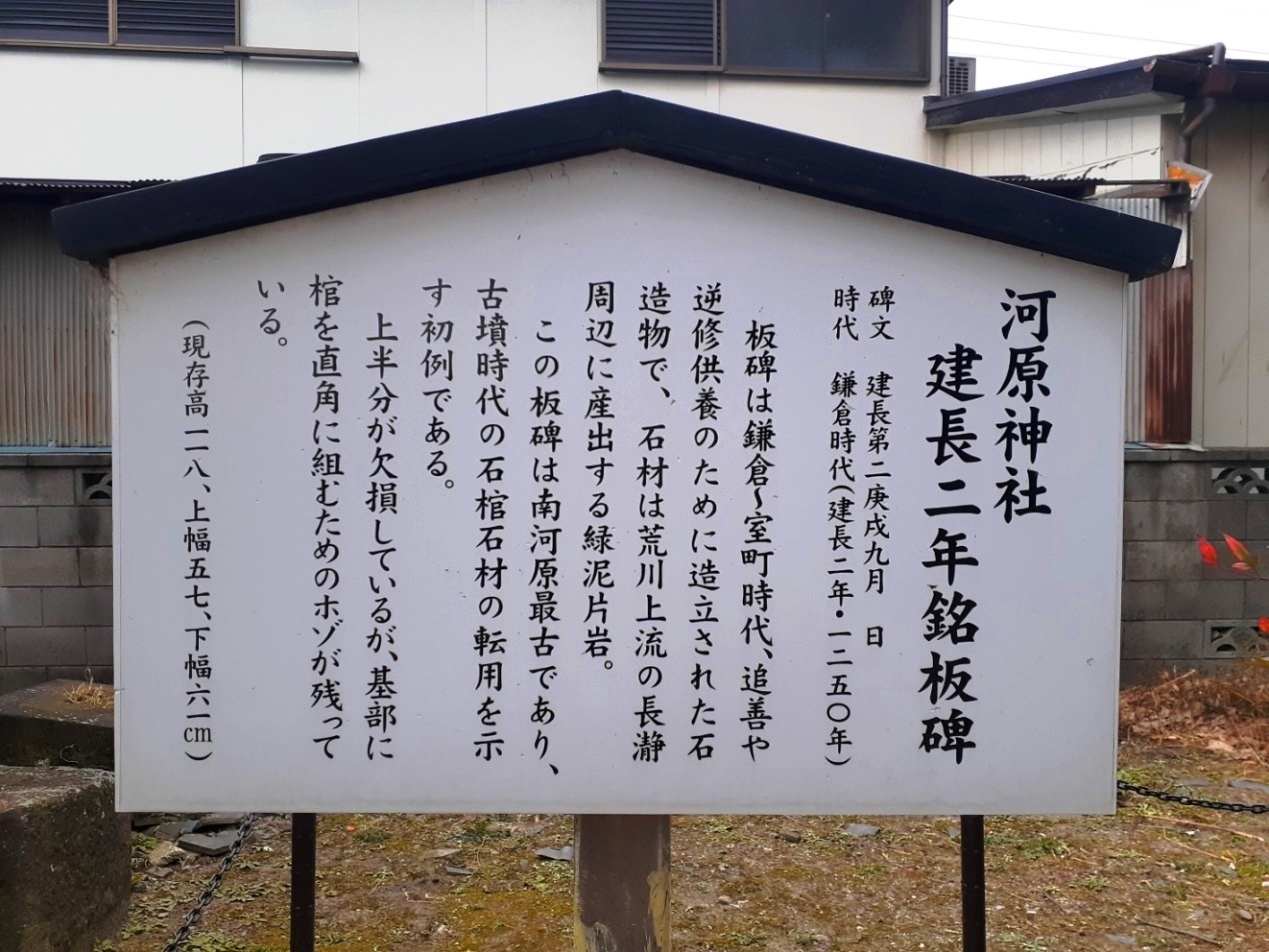 河原神社
建長二年銘板碑
碑文 建長第二庚戌九月 日
時代 鎌倉時代(建長二年・一二五〇年)
板碑は鎌倉~室町時代、追善や
逆修供養のために造立された石
造物で、石材は荒川上流の長瀞
周辺に産出する緑泥片岩。
この板碑は南河原最古であり、
古墳時代の石棺石材の転用を示
す初例である。
上半分が欠損しているが、基部に
棺を直角に組むためのホゾが残って
いる。
(現存高一一八、上幅五七、下幅六一cm)